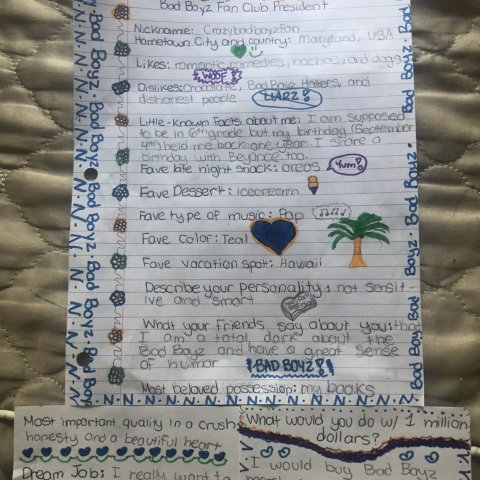 Bad Boyz Fan Club President
Nickname: CrazybadboyzFan
Hometown City and country: Maryland, USA
Likes: romantic comedies, nachos, and dogs
WOOF!
Dislikes: chocolate, Bad Boyz Haters, and
dishonest people LIARZ!
Little-Known Facts about me: I am supposed
to be in 6th grade but my birthday (September
4th) held me back one year. I share a
birthday with Beyoncé too.
Fave late night snack: oreos Yum!
Fave Dessert: icecream
Fave type of music: Pop
Fave color: Teal
Fave vacation spot: Hawaii
Describe your personality: not sensit-
ive and smart
What your friends say about you: that
I am a total dork about the
Bad Boyz and have a great sense
of humor !BAD BOYZ!
Most beloved possession: my books
Most important quality in a crush
honesty and a beautiful heart
Dream Job: I really want to
What would you do w/ 1 million
dollars?
I would buy Bad Boyz
N.N.N.N.N.N.N.N
Bad Boyz. Bad Boyz. Bad Boyz. Bad Boyz
Bad Boyz. Bad Boyz. Bad Boyz. Bad Boyz